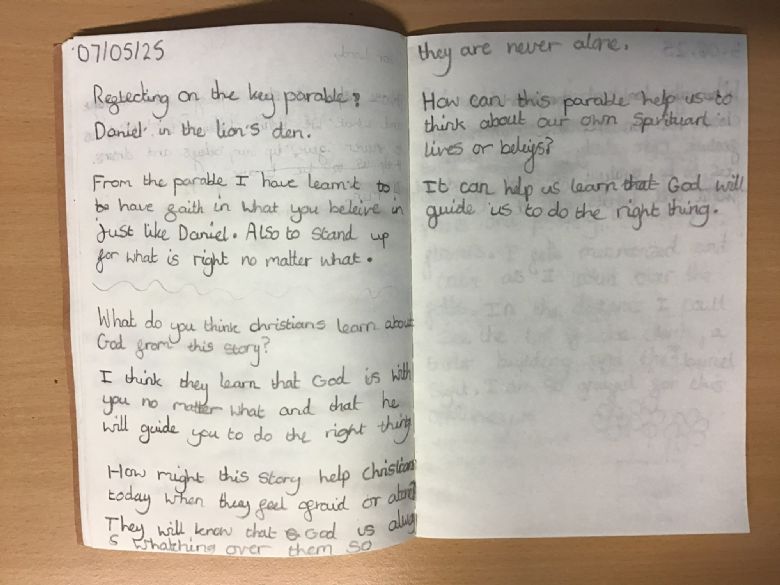 07/05/25
Reglecting on the key parable?
Daniel in the lion's den.
From the parable I have learn't to
be have gaith in what you beleive in
just like Daniel. Also to stand up
for what is right no matter what.
What do you think christians learn about
God from this story?
I think they learn that God is with
you no matter what and that he
will guide you to do the right thing
How might this story help christians
today when they feel afraid or alone?
They will know that God is alway
s whatching over them so
they are never alone.
How can this parable help us to
think about our own Spirituarl
lives or beleifs?
It can help us learn that God will
guide us to do the right thing.